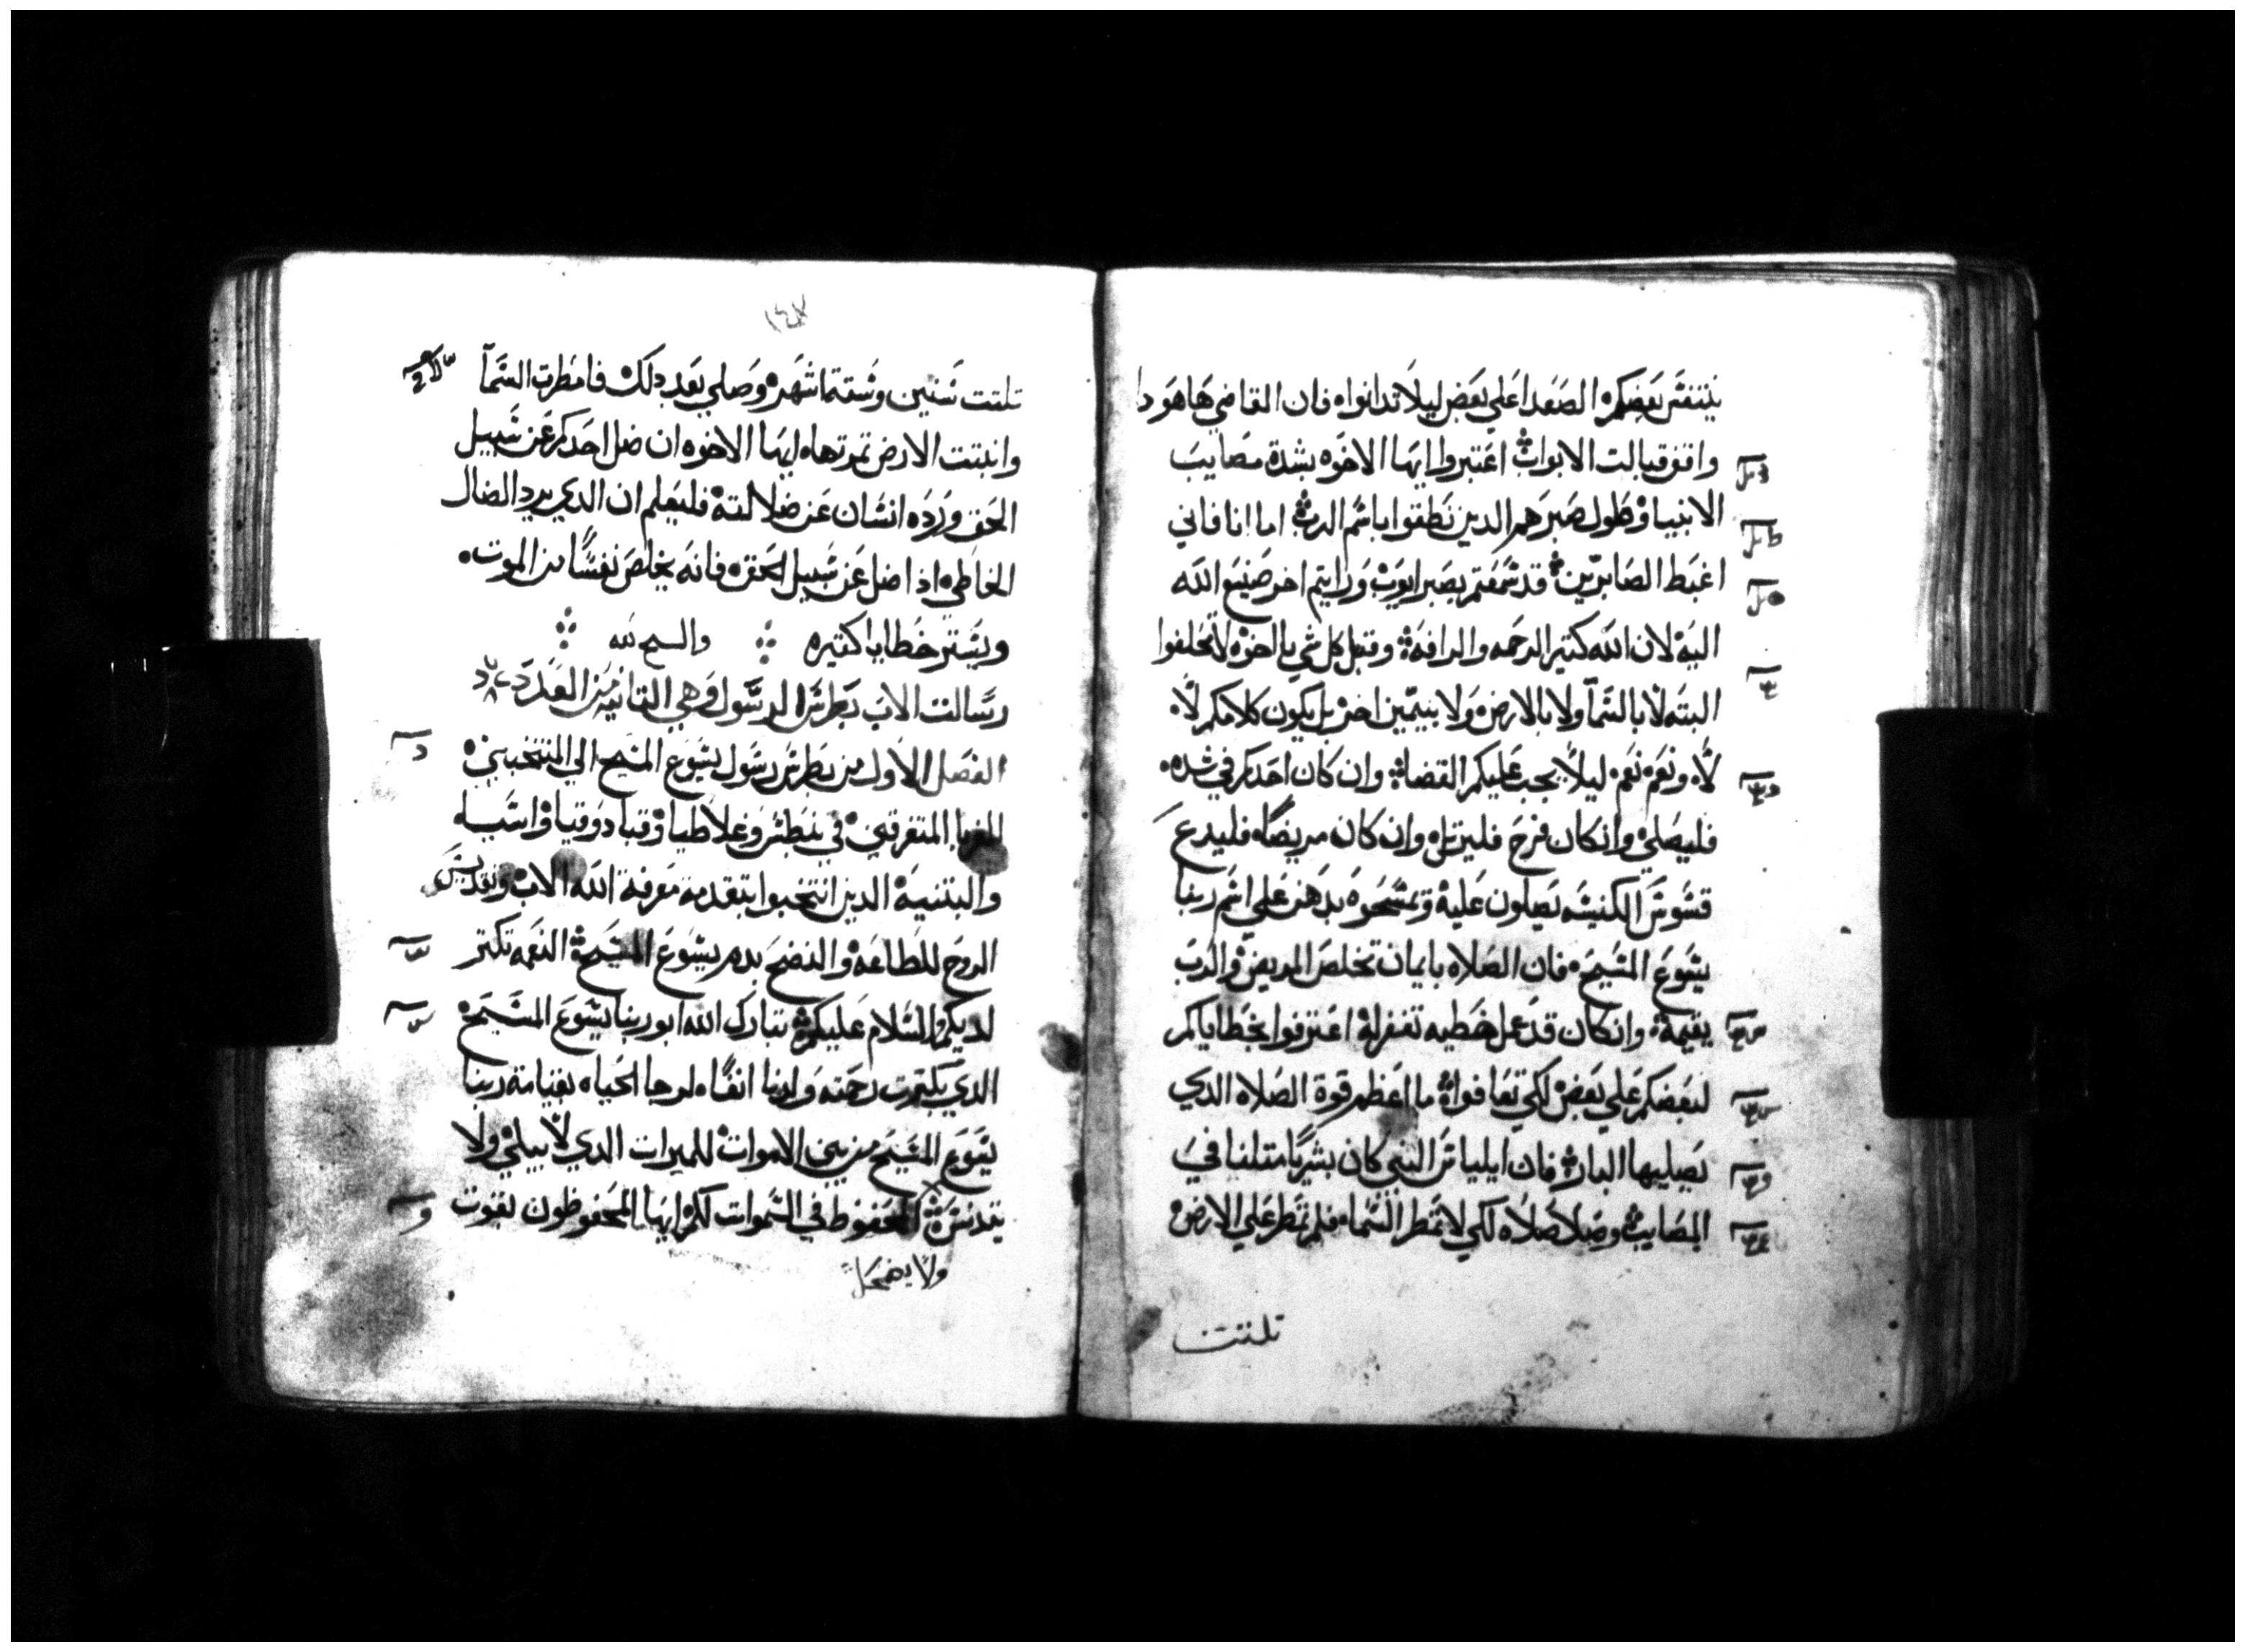 يتنفس بعضكم الصعدا علي بعض ليلا تدانوا فان القاضي هاهو دا
واقف قبالت الابواب اعتبروا ايها الاخوه بشدة مصايب
الانبيا وطول صبرهم الدين نطقوا باسم الرب اما انا فاني
اغبط الصابرين قد سمعتم بصبر ايوب ورايتم اخر صنيع الله
اليه لان الله كتير الرحمه والرافة وقبل كل شي يا اخوة لا تحلفوا
البته لا بالسما ولا بالارض ولا بيمين اخر بل يكون كلامكم لا
لا ونعم نعم ليلا يجب عليكم القضا وان كان احدكم في شده
فليصلي وان كان فرح فليرتل وان كان مريضا فليدع
قسوس الكنيسه يصلون عليه وتمسحوه بدهن علي اسم ربنا
يسوع المسيح فان الصلاه بايمان تخلص المريض والرب
يقيمة وان كان قد عمل خطيه تغفر له اعترفوا بخطاياكم
لبعضكم علي بعض لكي تعافوا ما اعظم قوة الصلاه الدي
يصليها البار فان ايلياس النبي كان بشريا متلنا في
المصايب وصلا صلاه لكي لا تمطر السماء فلم تمطر علي الارض
تلتت
تلتت سنين وستة اشهر وصلي بعد دلك فامطرت السما
وانبتت الارض تمرتها ايها الاخوه ان ضل احدكم عن سبيل
الحق ورده انسان عن ضلالته فليعلم ان الدي يرد الضال
الخاطي ادا ضل عن سبيل الحق فانه يخلص نفسا من الموت
ويستر خطايا كتيره والسبح لله
رسالت الاب بطرس الرسول وهي التانيه من العدد
الفصل الاول من بطرس رسول يسوع المسيح الي المنتخبين
الغربا المتفرقين في بنطس وغلاطيا وقبادوقيا واسيه
والبتنية الدين انتخبوا بتقدمة معرفة الله الاب وتقديس
الروح للطاعه والنضح بدم يسوع المسيح النعمه تكتر
لديكم والسلام عليكم تبارك الله ابو ربنا يسوع المسيح
الدي بكترت رحمته ولدنا انفا لرجا الحياه بقيامة ربنا
يسوع المسيح من بين الاموات للميرات الدي لا يبلي ولا
يتدنس المحفوظ في السموات لكم ايها المحفوظون بقوت
ولا يضمحل